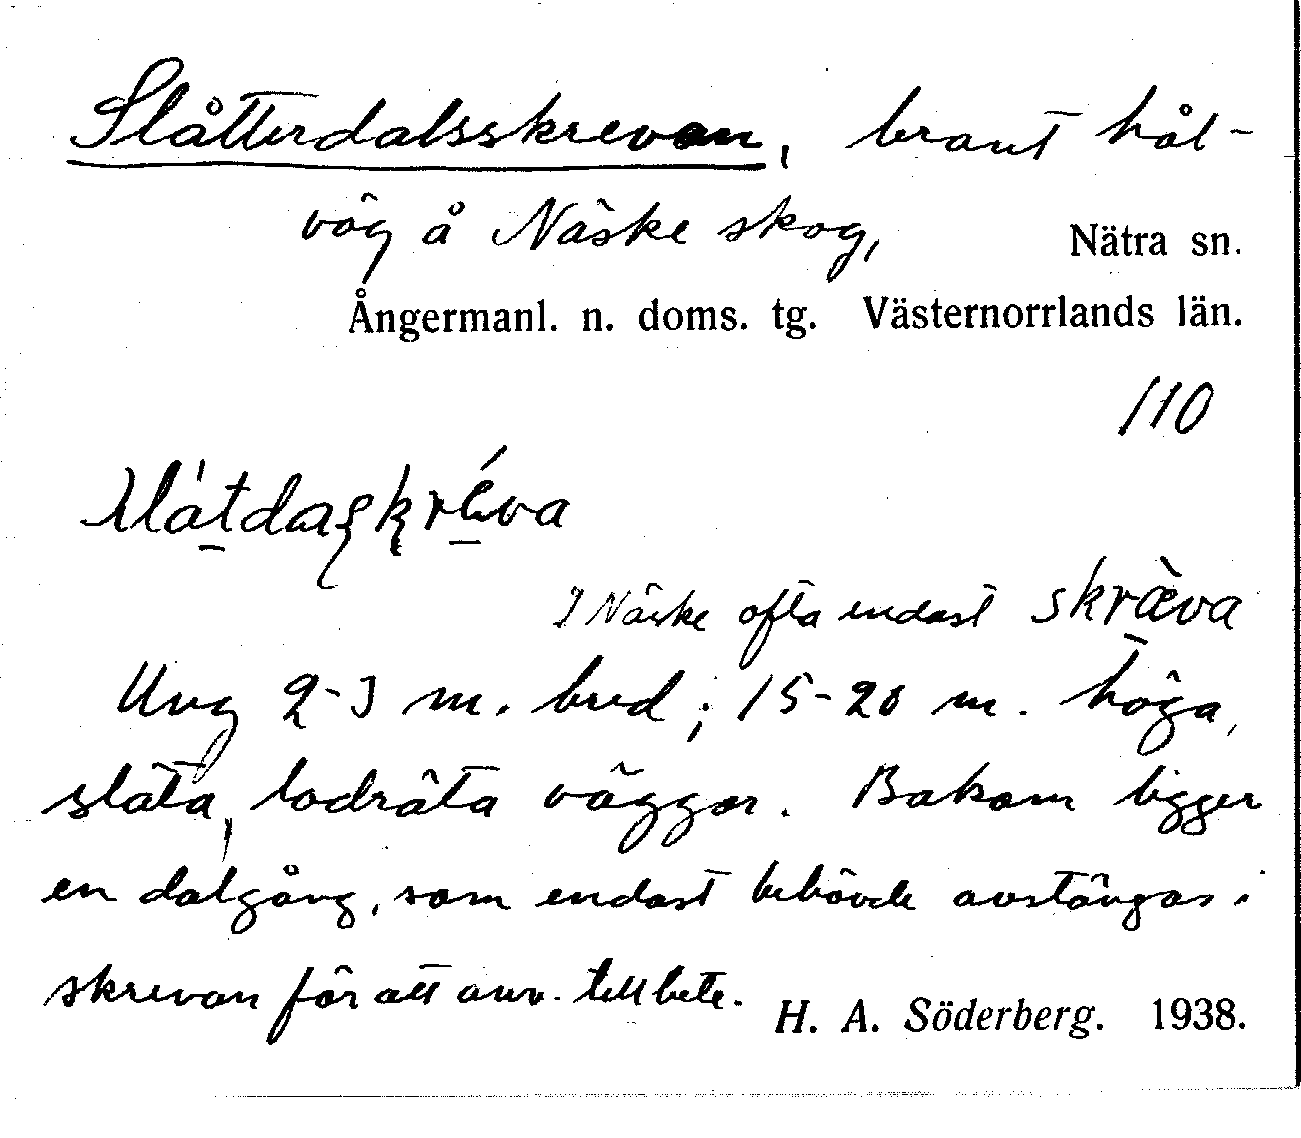 Slåtterdalsskrevan, brant hål-
väg å Näske skog, Nätra sn.
Ångermanl. n. doms. tg. Västernorrlands län.
110
I Näske ofta endast skræva
Ung 2-3 m. bred; 15-20 m. höga,
släta, lodräta väggar. Bakom ligger
en dalgång, som endast behövde avstängas i
skrevan för att anv. till bete. H. A. Söderberg. 1938.